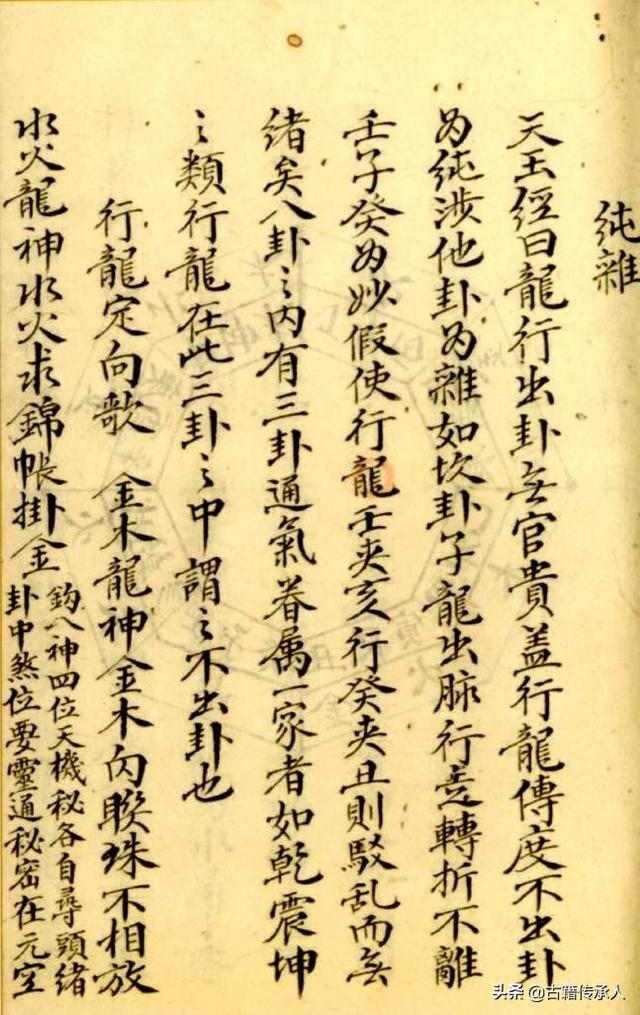 纯雜
天玉經曰龍行出卦无官貴盖行龍傳度不出卦
为纯涉他卦为雜如坎卦子龍出脉行意轉折不離
壬子癸为妙假使行龍壬夾亥行癸夾丑則駁乱而无
绪矣八卦之内有三卦通氣眷属一家者如乾震坤
之類行龍在此三卦之中謂之不出卦也
行龍定向歌 金木龍神金木内聯珠不相放
水火龍神水火求錦帐掛金
鈎八神四位天機秘各自尋頭绪
卦中煞位要靈通秘密在元空
头条 @古籍传承人